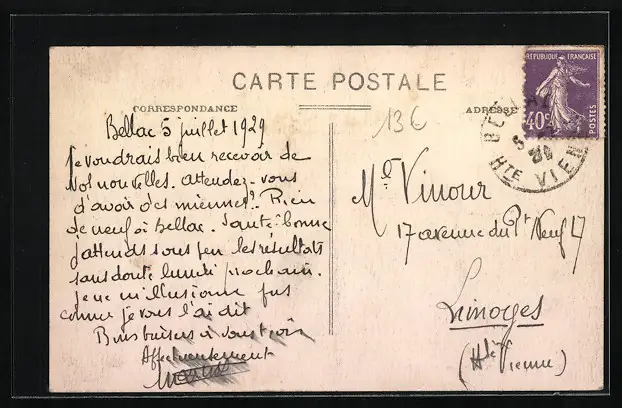 CARTE POSTALE
CORRESPONDANCE
ADRESSE
RÉPUBLIQUE FRANÇAISE
40c
POSTES
HTE VIEN
136
Bellac 5 juillet 1929
Je voudrais bien recevoir de
vos nouvelles. Attendez-vous
d'avoir des miennes? Rien
de neuf à Bellac. Santé bonne
j'attends sous peu les résultats
sans doute lundi prochain.
Je ne m'illusionne pas
comme je vous l'ai dit
Bons baisers à vous trois
Affectueusement
Vinour
17 avenue du Pt Neuf 17
Limoges
(Hte Vienne)